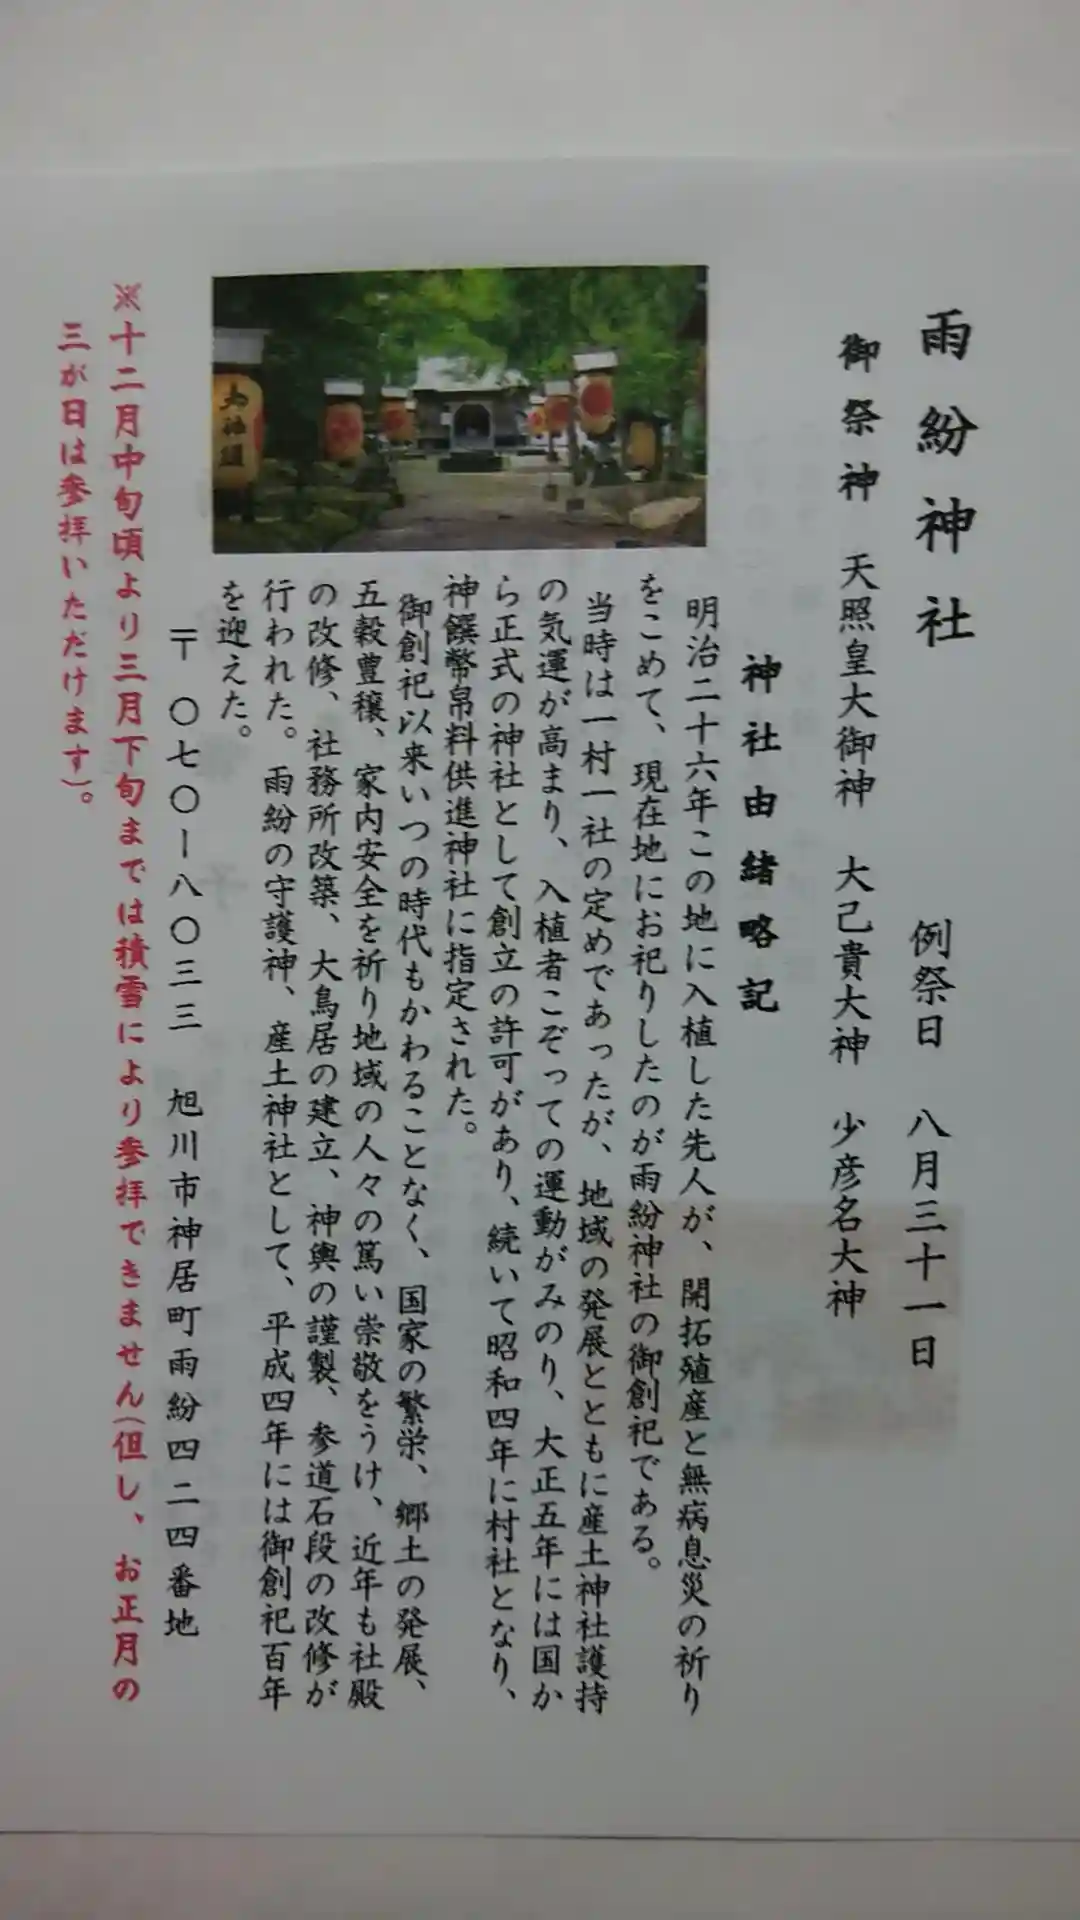 雨紛神社　例祭日　八月三十一日
御祭神　天照皇大御神　大己貴大神　少彦名大神
神社由緒略記
明治二十六年この地に入植した先人が、開拓殖産と無病息災の祈り
をこめて、現在地にお祀りしたのが雨紛神社の御創祀である。
当時は一村一社の定めであったが、地域の発展とともに産土神社護持
の気運が高まり、入植者こぞっての運動がみのり、大正五年には国か
ら正式の神社として創立の許可があり、続いて昭和四年に村社となり、
神饌幣帛料供進神社に指定された。
御創祀以来いつの時代もかわることなく、国家の繁栄、郷土の発展、
五穀豊穣、家内安全を祈り地域の人々の篤い崇敬をうけ、近年も社殿
の改修、社務所改築、大鳥居の建立、神輿の謹製、参道石段の改修が
行われた。雨紛の守護神、産土神社として、平成四年には御創祀百年
を迎えた。
〒〇七〇ー八〇三三　旭川市神居町雨紛四二四番地
※十二月中旬頃より三月下旬までは積雪により参拝できません(但し、お正月の
三が日は参拝いただけます)。